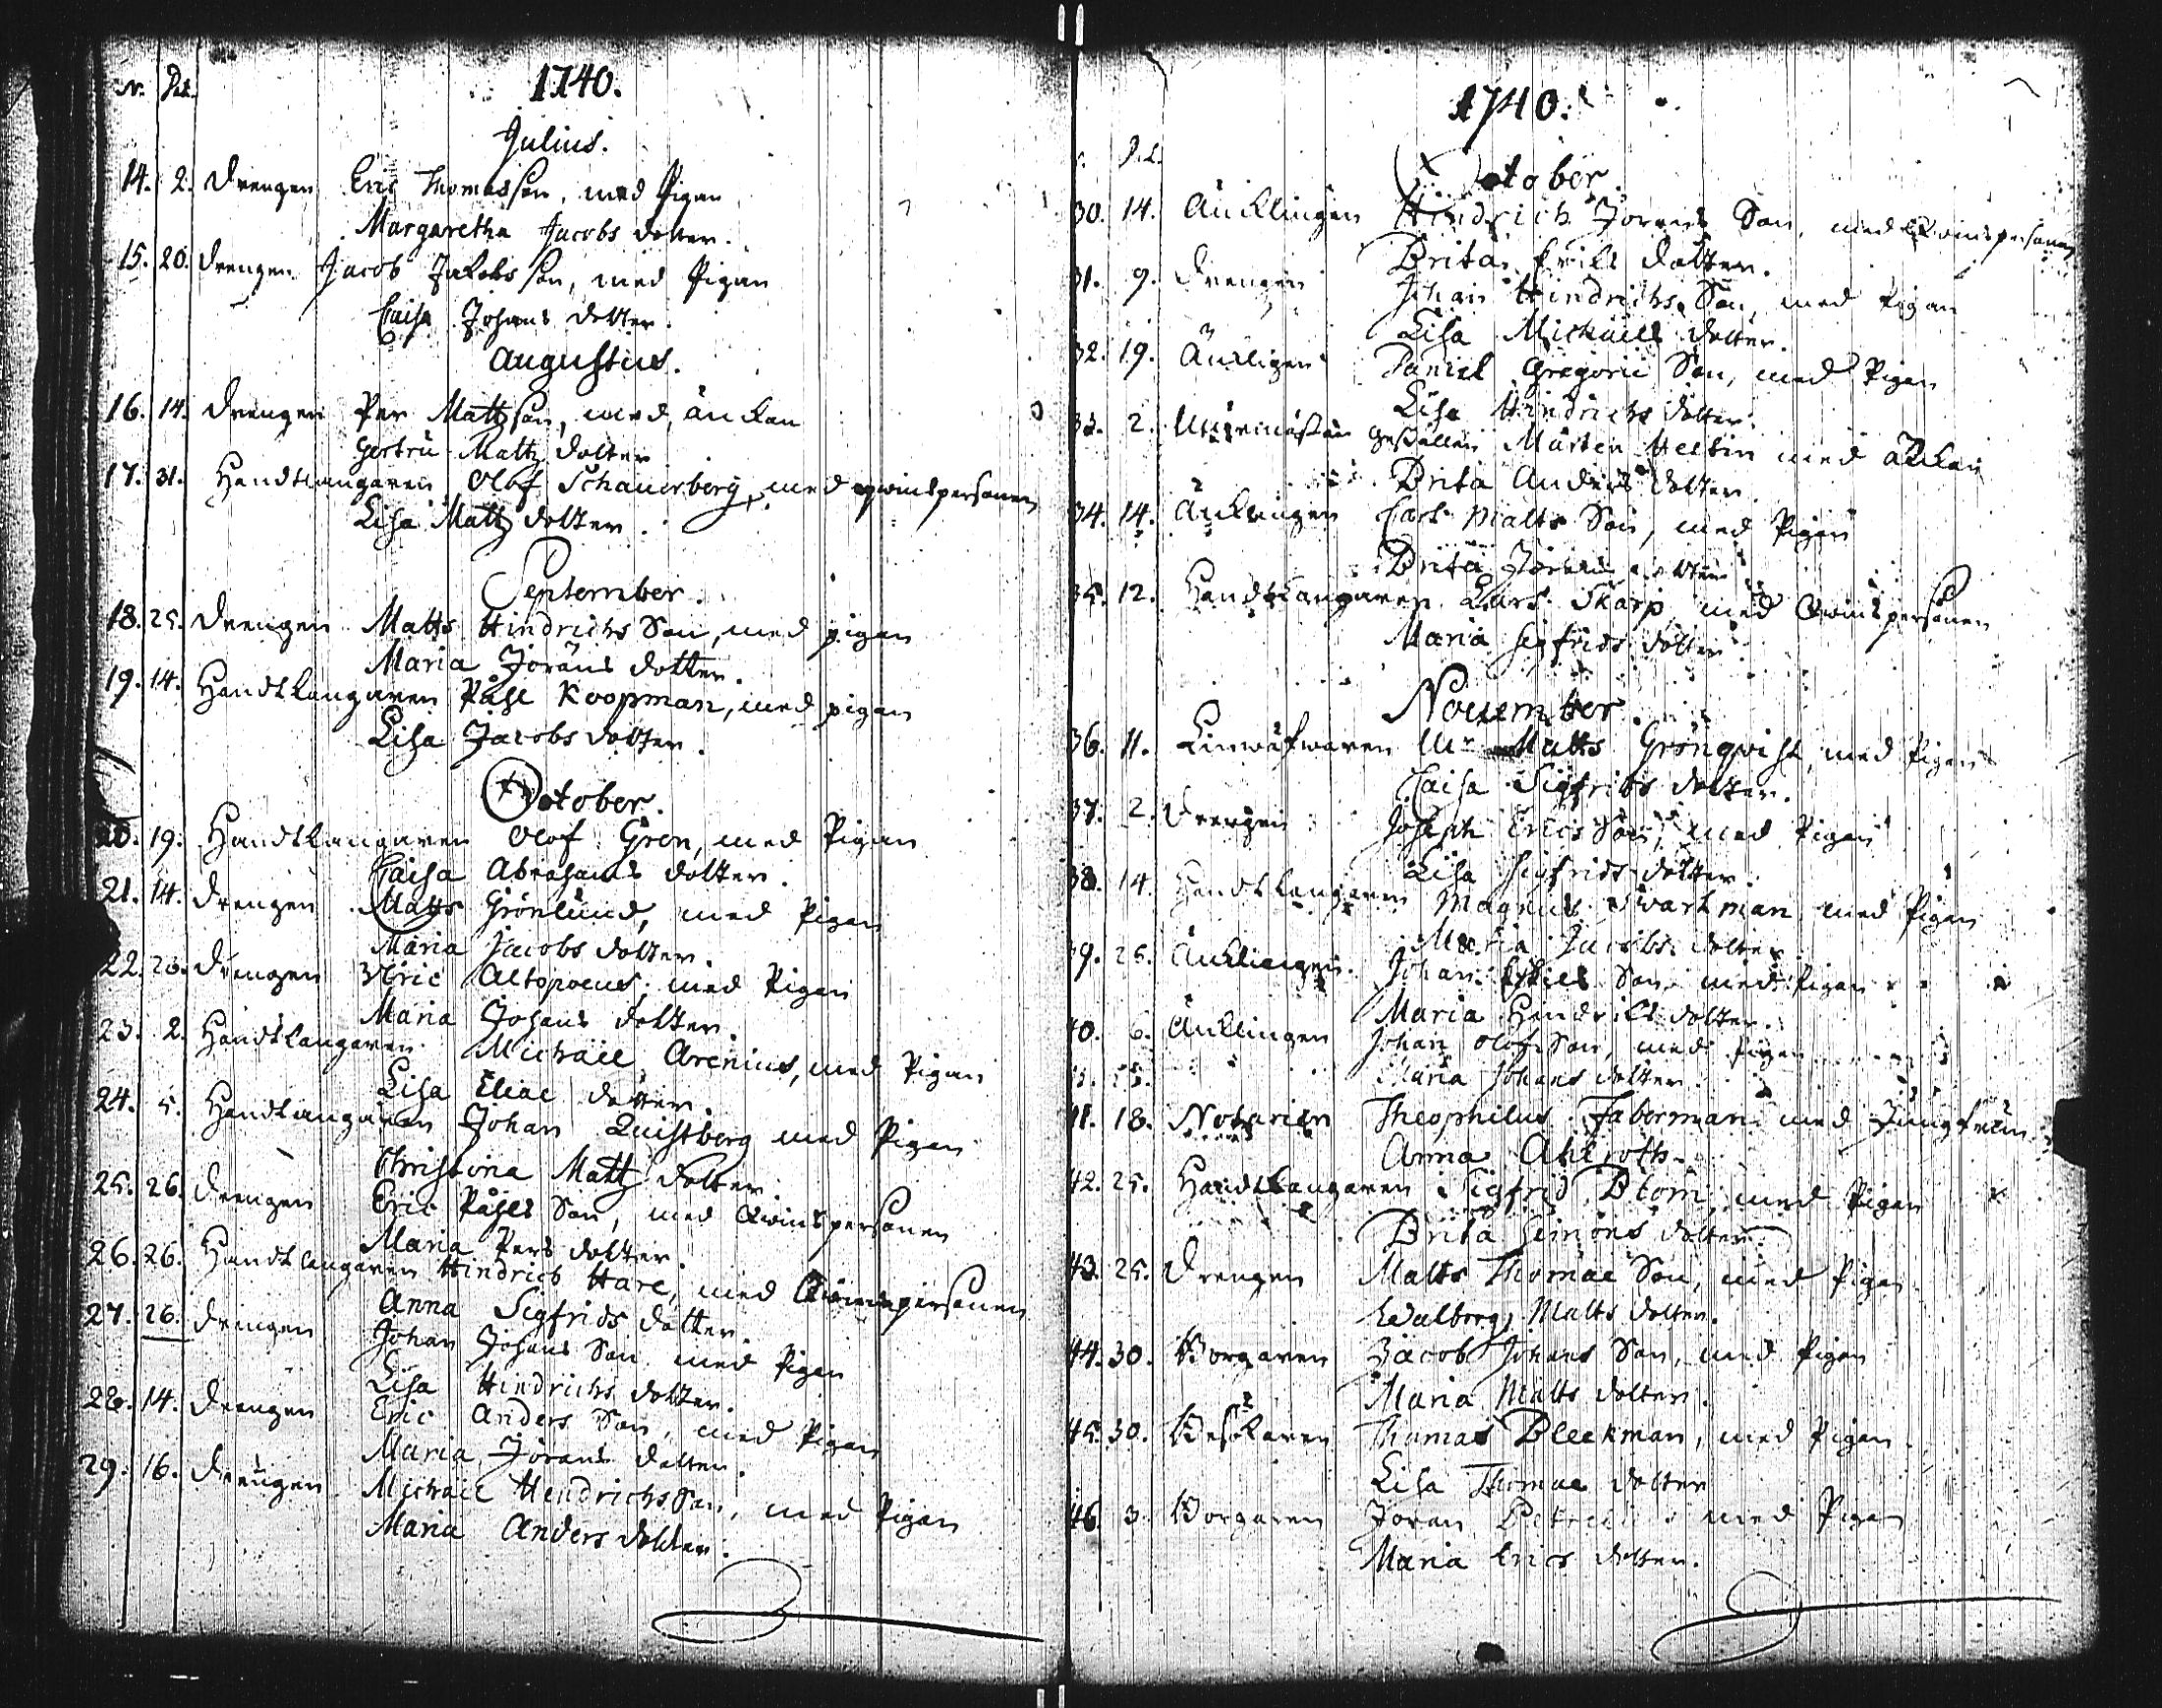 N. D.
1740.
Julius.
14. 2. Drengen Eric Thomasson, med Pigan
Margaretha Jacobs dotter.
15. 20. Drengen Jacob Jakobsson, med Pigan
Caisa Johans dotter.
Augustus.
16. 14. Drengen Per Mattzson, med änkan
Gertru Mattz dotter
17. 31. Handtlangaren Olof Schauerberg, med qwinspersonen
Lisa Mattz dotter.
September.
18. 25. Drengen Matts Hindrichs Son, med pigan
Maria Jörans dotter.
19. 14. Handtlangaren Påhl Koopman, med pigan
Lisa Jacobs dotter.
October.
20. 19. Handtlangaren Olof Gren, med Pigan
Caisa Abrahams dotter.
21. 14. Drengen Matts Grönlund, med Pigan
Maria Jacobs dotter.
22. 26. Drengen Eric Altopoeus, med Pigan
Maria Johans dotter.
23. 2. Handtlangaren Michael Arenius, med Pigan
Lisa Eliae dotter.
24. 5. Handtlangaren Johan Quistberg med Pigan
Christina Mattz dotter.
25. 26. Drengen Eric Påhls Son, med Qwinspersonen
Maria Pers dotter.
26. 26. Handtlangaren Hindrich Hare, med Qwinspersonen
Anna Sigfrids dotter.
27. 26. Drengen Johan Johans Son med Pigan
Lisa Hindrichs dotter.
28. 14. Drengen Eric Anders Son, med Pigan
Maria Jörans dotter.
29. 16. Drengen Michael Hendrichs Son, med Pigan
Maria Anders dotter.
1740.
October.
30. 14. Änklingen Hindrich Jörans Son, med Qwinspersonen
Brita Eriks dotter.
31. 9. Drengen Johan Hindrichs Son, med Pigan
Lisa Michaels dotter.
32. 19. Änklingen Daniel Gregorii Son, med Pigan
Lisa Hindrichs dotter.
33. 2. Murmästare Gesällen Mårten Hellin med Änkan
Brita Anders dotter.
34. 14. Änklingen Carl Matts Son, med Pigan
Brita Jörans dotter
35. 12. Handtlangaren Lars Skarp med Qwinspersonen
Maria Sigfrids dotter
November.
36. 11. Linwäfwaren Mr Matts Grönqvist, med Pigan
Caisa Sigfrids dotter.
37. 2. Drengen Joseph Erics Son, med Pigan
Lisa Sigfrids dotter.
38. 14. Handtlangaren Magnus Swartman med Pigan
Maria Jacobs dotter
39. 26. Änklingen Johan Son med Pigan
Maria Hindrichs dotter.
40. 6. Änklingen Johan Olofs Son, med Pigan
Maria Johans dotter.
41. 18. Notarien Theophilus Faberman med Jungfrun
Anna Ahlroth.
42. 25. Handtlangaren Sigfrid Blom, med Pigan
Brita Simons dotter.
43. 25. Drengen Matts Thomae Son, med Pigan
Walborg Matts dotter.
44. 30. Borgaren Jacob Johans Son, med Pigan
Maria Matts dotter.
45. 30. Besökaren Thomas Bleekman, med Pigan
Lisa Thomae dotter
46. 3. Borgaren Joran med Pigan
Maria Erics dotter.